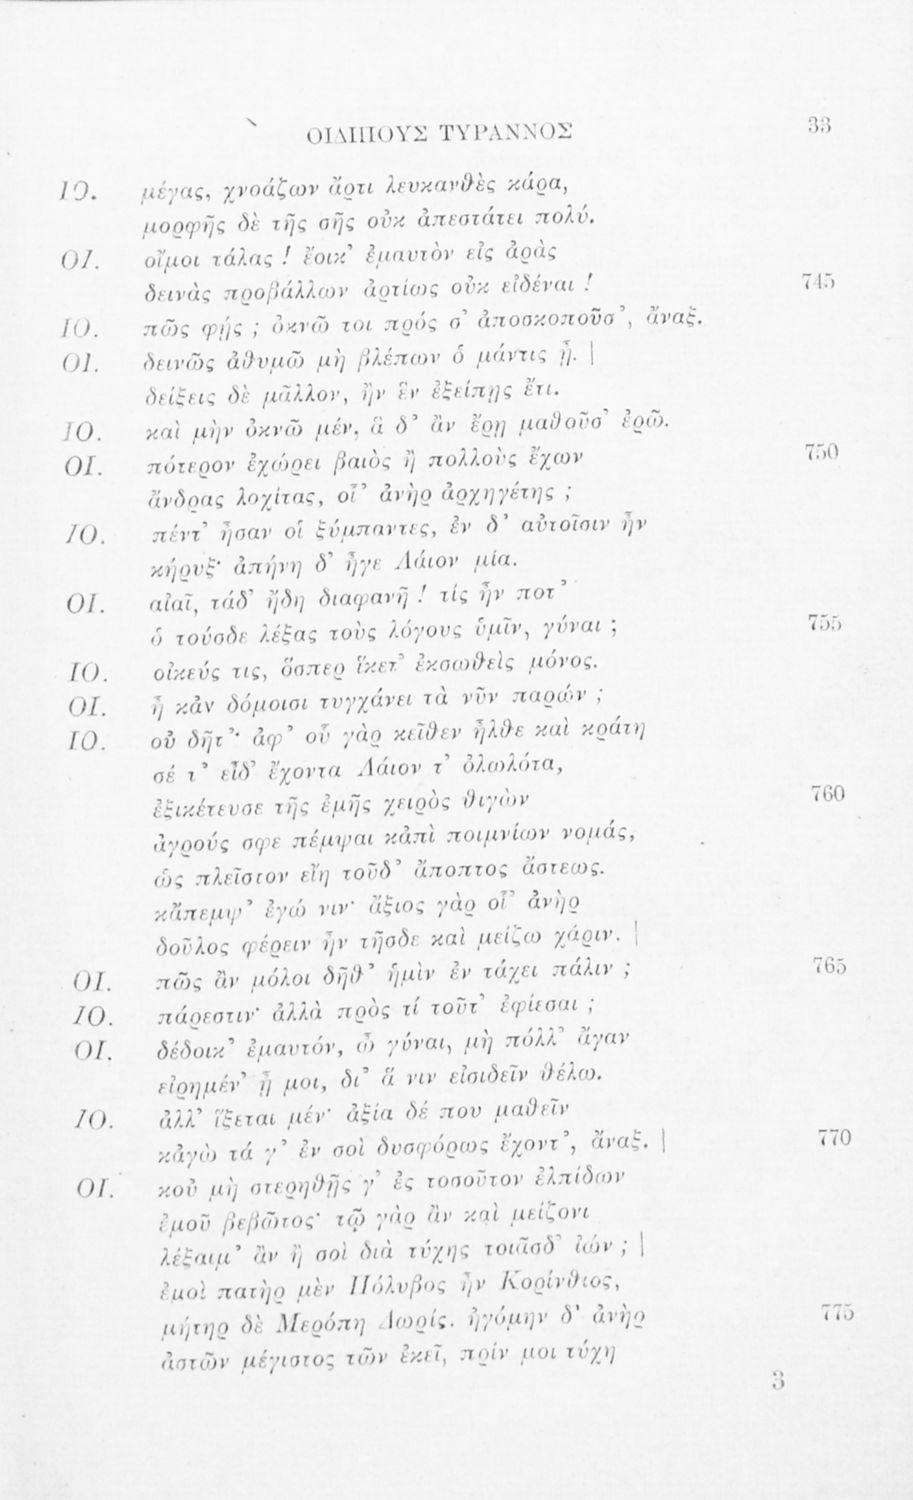 ΟΙΔΙΠΟΥΣ ΤΥΡΑΝΝΟΣ 33
ΙΟ. μέγας, χνοάζων ἄρτι λευκανθὲς κάρα,
μορφῆς δὲ τῆς σῆς οὐκ ἀπεστάτει πολύ.
ΟΙ. οἴμοι τάλας! ἔοικ’ ἐμαυτὸν εἰς ἀρὰς
δεινὰς προβάλλων ἀρτίως οὐκ εἰδέναι! 745
ΙΟ. πῶς φῄς; ὀκνῶ τοι πρός σ’ ἀποσκοποῦσ’, ἄναξ.
ΟΙ. δεινῶς ἀθυμῶ μὴ βλέπων ὁ μάντις ᾖ. |
δείξεις δὲ μᾶλλον, ἢν ἓν ἐξείπῃς ἔτι.
ΙΟ. καὶ μὴν ὀκνῶ μέν, ἃ δ’ ἂν ἔρῃ μαθοῦσ’ ἐρῶ.
ΟΙ. πότερον ἐχώρει βαιὸς ἢ πολλοὺς ἔχων 750
ἄνδρας λοχίτας, οἷ’ ἀνὴρ ἀρχηγέτης;
ΙΟ. πέντ’ ἦσαν οἱ ξύμπαντες, ἐν δ’ αὐτοῖσιν ἦν
κήρυξ· ἀπήνη δ’ ἦγε Λάιον μία.
ΟΙ. αἰαῖ, τάδ’ ἤδη διαφανῆ! τίς ἦν ποτ’
ὁ τούσδε λέξας τοὺς λόγους ὑμῖν, γύναι; 755
ΙΟ. οἰκεύς τις, ὅσπερ ἵκετ’ ἐκσωθεὶς μόνος.
ΟΙ. ἦ κἀν δόμοισι τυγχάνει τὰ νῦν παρών;
ΙΟ. οὐ δῆτ’· ἀφ’ οὗ γὰρ κεῖθεν ἦλθε καὶ κράτη
σέ τ’ εἶδ’ ἔχοντα Λάιον τ’ ὀλωλότα,
ἐξικέτευσε τῆς ἐμῆς χειρὸς θιγὼν 760
ἀγρούς σφε πέμψαι κἀπὶ ποιμνίων νομάς,
ὡς πλεῖστον εἴη τοῦδ’ ἄποπτος ἄστεως.
κἄπεμψ’ ἐγώ νιν· ἄξιος γὰρ οἷ’ ἀνὴρ
δοῦλος φέρειν ἦν τῆσδε καὶ μείζω χάριν. |
ΟΙ. πῶς ἂν μόλοι δῆθ’ ἡμὶν ἐν τάχει πάλιν; 765
ΙΟ. πάρεστιν· ἀλλὰ πρὸς τί τοῦτ’ ἐφίεσαι;
ΟΙ. δέδοικ’ ἐμαυτόν, ὦ γύναι, μὴ πόλλ’ ἄγαν
εἰρημέν’ ᾖ μοι, δι’ ἅ νιν εἰσιδεῖν θέλω.
ΙΟ. ἀλλ’ ἵξεται μέν· ἀξία δέ που μαθεῖν
κἀγὼ τά γ’ ἐν σοὶ δυσφόρως ἔχοντ’, ἄναξ. | 770
ΟΙ. κοὐ μὴ στερηθῇς γ’ ἐς τοσοῦτον ἐλπίδων
ἐμοῦ βεβῶτος· τῷ γὰρ ἂν καὶ μείζονι
λέξαιμ’ ἂν ἢ σοὶ διὰ τύχης τοιᾶσδ’ ἰών; |
ἐμοὶ πατὴρ μὲν Πόλυβος ἦν Κορίνθιος,
μήτηρ δὲ Μερόπη Δωρίς. ἠγόμην δ’ ἀνὴρ 775
ἀστῶν μέγιστος τῶν ἐκεῖ, πρίν μοι τύχη
3